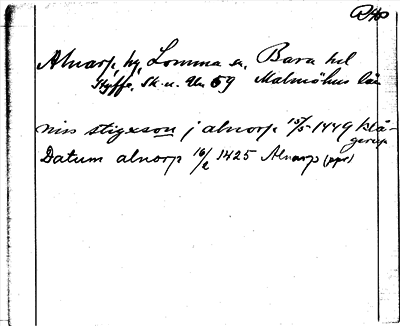 Alnarp, by, Lomma sn, Bara hd
Styffe, Sk. u. Un 59 Malmöhus län
niss stigxson j alnorp 15/5 1449 Klå-
gerup
Datum alnorp 16/2 1425 Alnarp (ppr)